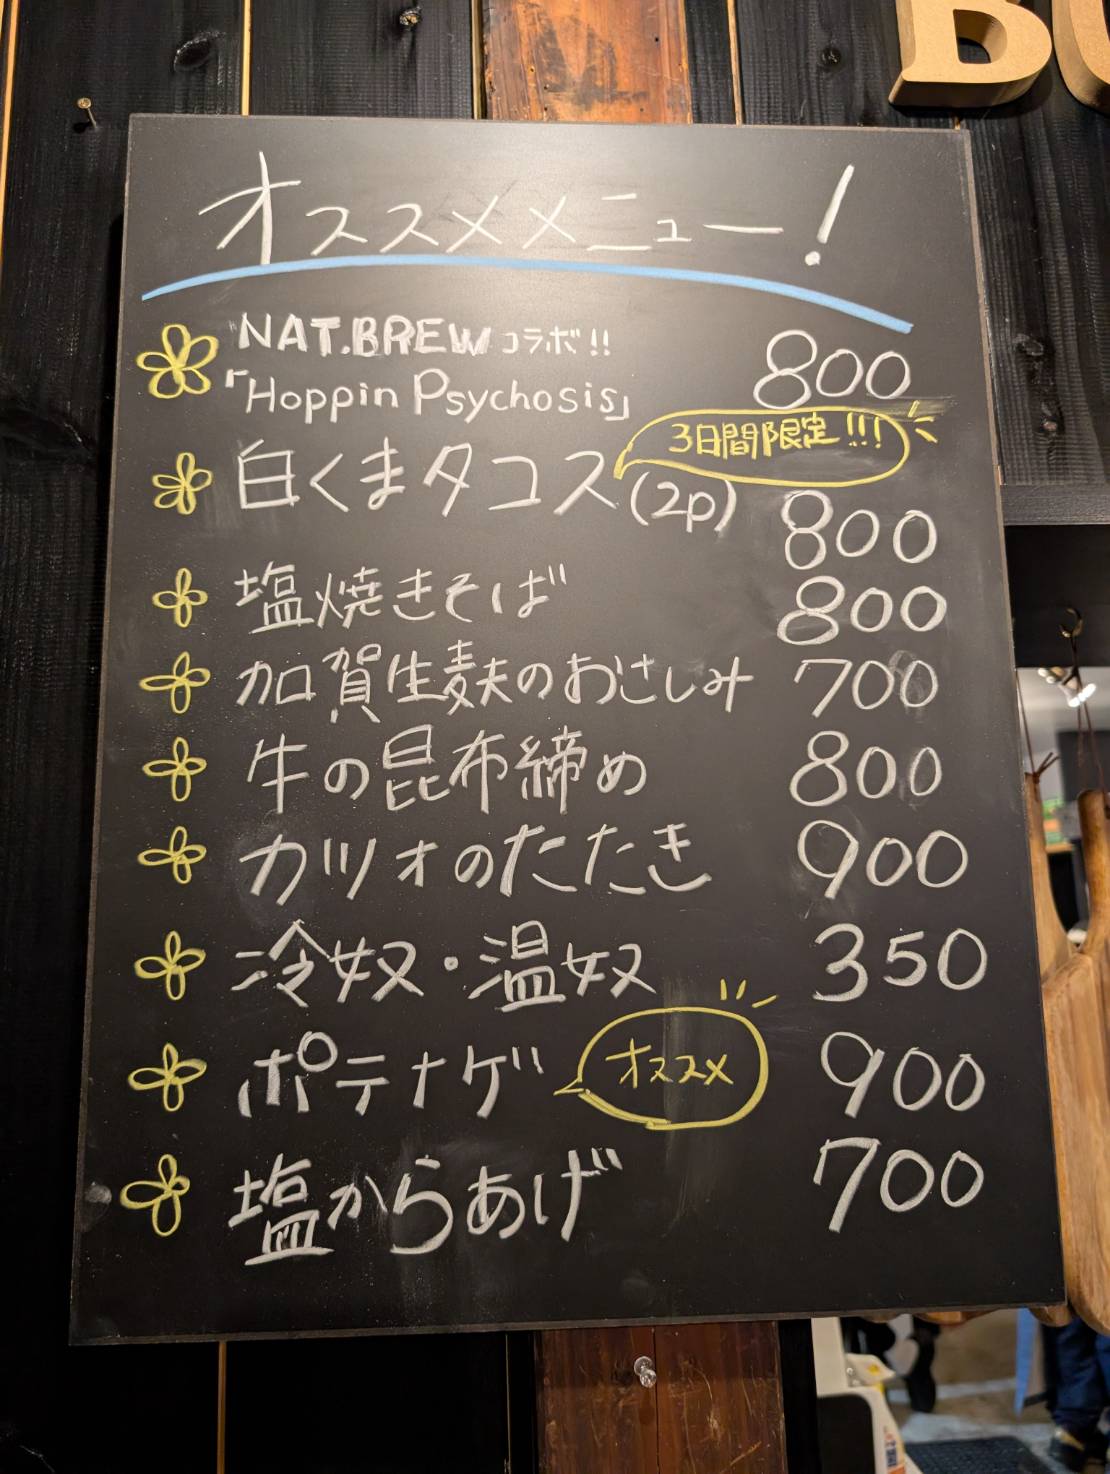 BU
オススメメニュー!
NAT.BREWコラボ!!
「Hoppin Psychosis」 800
3日間限定!!!
白くまタコス(2p) 800
塩焼きそば 800
加賀生麩のおさしみ 700
牛の昆布締め 800
カツオのたたき 900
冷奴・温奴 350
ポテナゲ オススメ 900
塩からあげ 700